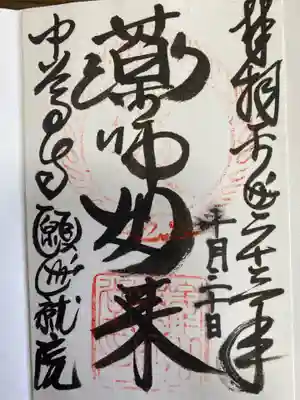 奉拝平成二十三年
十月二十日
薬師如来
中尊寺願成就院